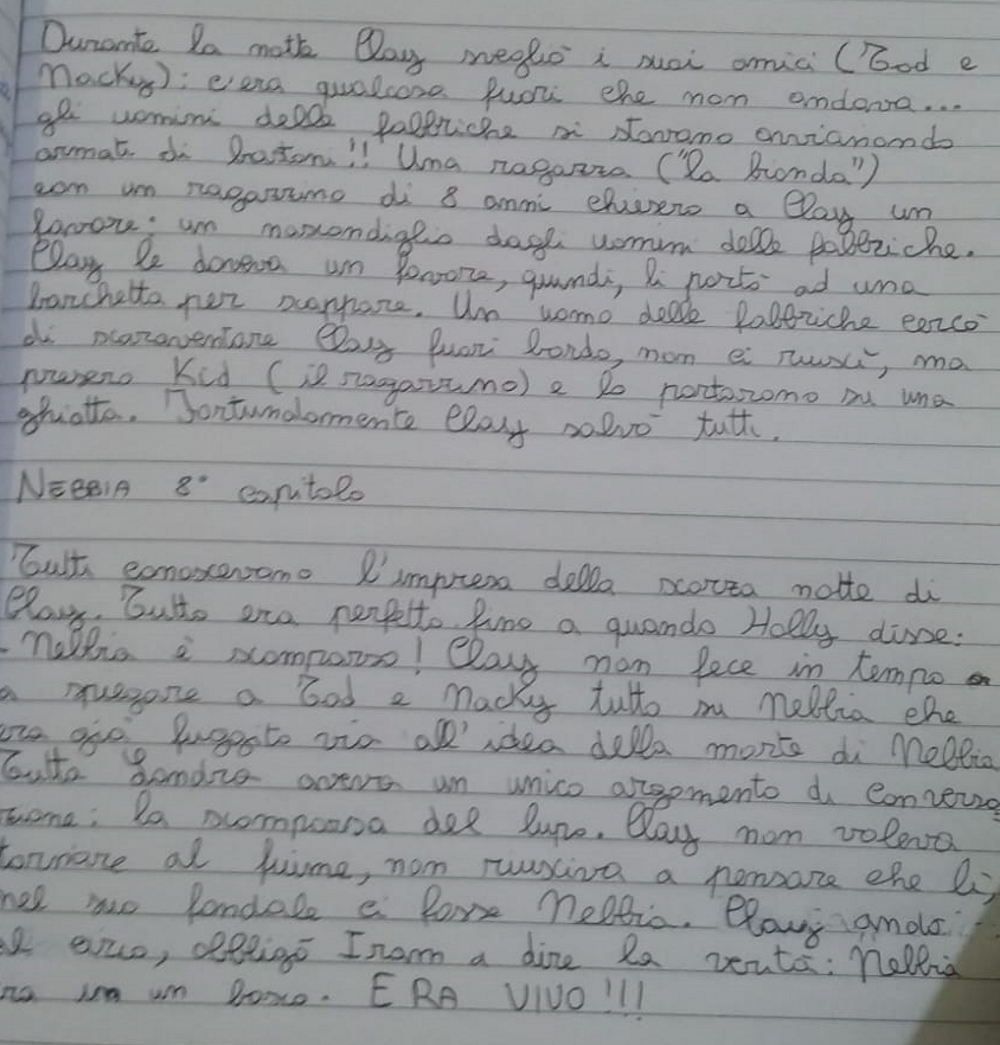 Durante la notte Clay svegliò i suoi amici (Tod e
Nacky): c'era qualcosa fuori che non andava...
gli uomini delle fabbriche si stavano avviando
armati di bastoni!! Una ragazza ("la bionda")
con un ragazzino di 8 anni chiesero a Clay un
favore: un nascondiglio dagli uomini delle fabbriche.
Clay le doveva un favore, quindi, li portò ad una
barchetta per scappare. Un uomo delle fabbriche cercò
di scaraventare Clay fuori bordo, non ci riuscì, ma
presero Kid (il ragazzino) e lo portarono su una
ghiatta. Fortundamente Clay salvò tutti.
NEBBIA 8° capitolo
Tutti conoscevano l'impresa della scorza notte di
Clay. Tutto era perfetto fino a quando Holly disse:
- Nebbia è scomparso! Clay non fece in tempo
a spiegare a Tod e Nacky tutto su Nebbia che
era già fuggito via all'idea della morte di Nebbia
Tutta Londra aveva un unico argomento di conversa
zione: la scomparsa del lupo. Clay non voleva
tornare al fiume, non riusciva a pensare che lì,
nel suo fondale ci fosse Nebbia. Clay andò
al circo, obbligò Iram a dire la verità: Nebbia
ra in un bosco. ERA VIVO!!!